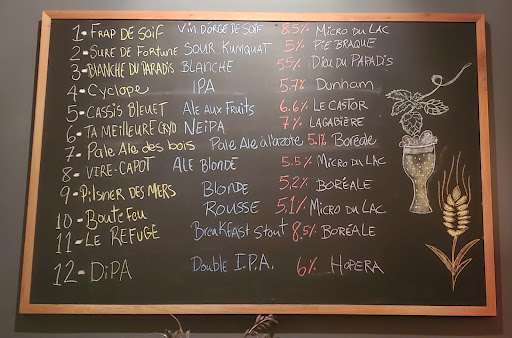 1- FRAP DE SOIF VIN D'ORGE DE SOIF 8.5% MICRO DU LAC
2- SURE DE FORTUNE SOUR KUMQUAT 5% PIE BRAQUE
3- BLANCHE DU PARADIS BLANCHE 5.5% DIEU DU PARADIS
4- Cyclope IPA 5.7% Dunham
5- CASSIS BLEUET ALE AUX FRUITS 6.6% LE CASTOR
6- TA MEILLEURE CRYO NEIPA 7% LAGABIÈRE
7- Pale Ale des bois Pale Ale à l'azote 5.1% Boréale
8- VIRE-CAPOT ALE BLONDE 5.5% MICRO DU LAC
9- PILSINER DES MERS BLONDE 5,2% BORÉALE
10- Boutefeu ROUSSE 5,1% MICRO DU LAC
11- LE REFUGE Breakfast Stout 8.5% BORÉALE
12- DiPA Double I.P.A. 6% HOPERA